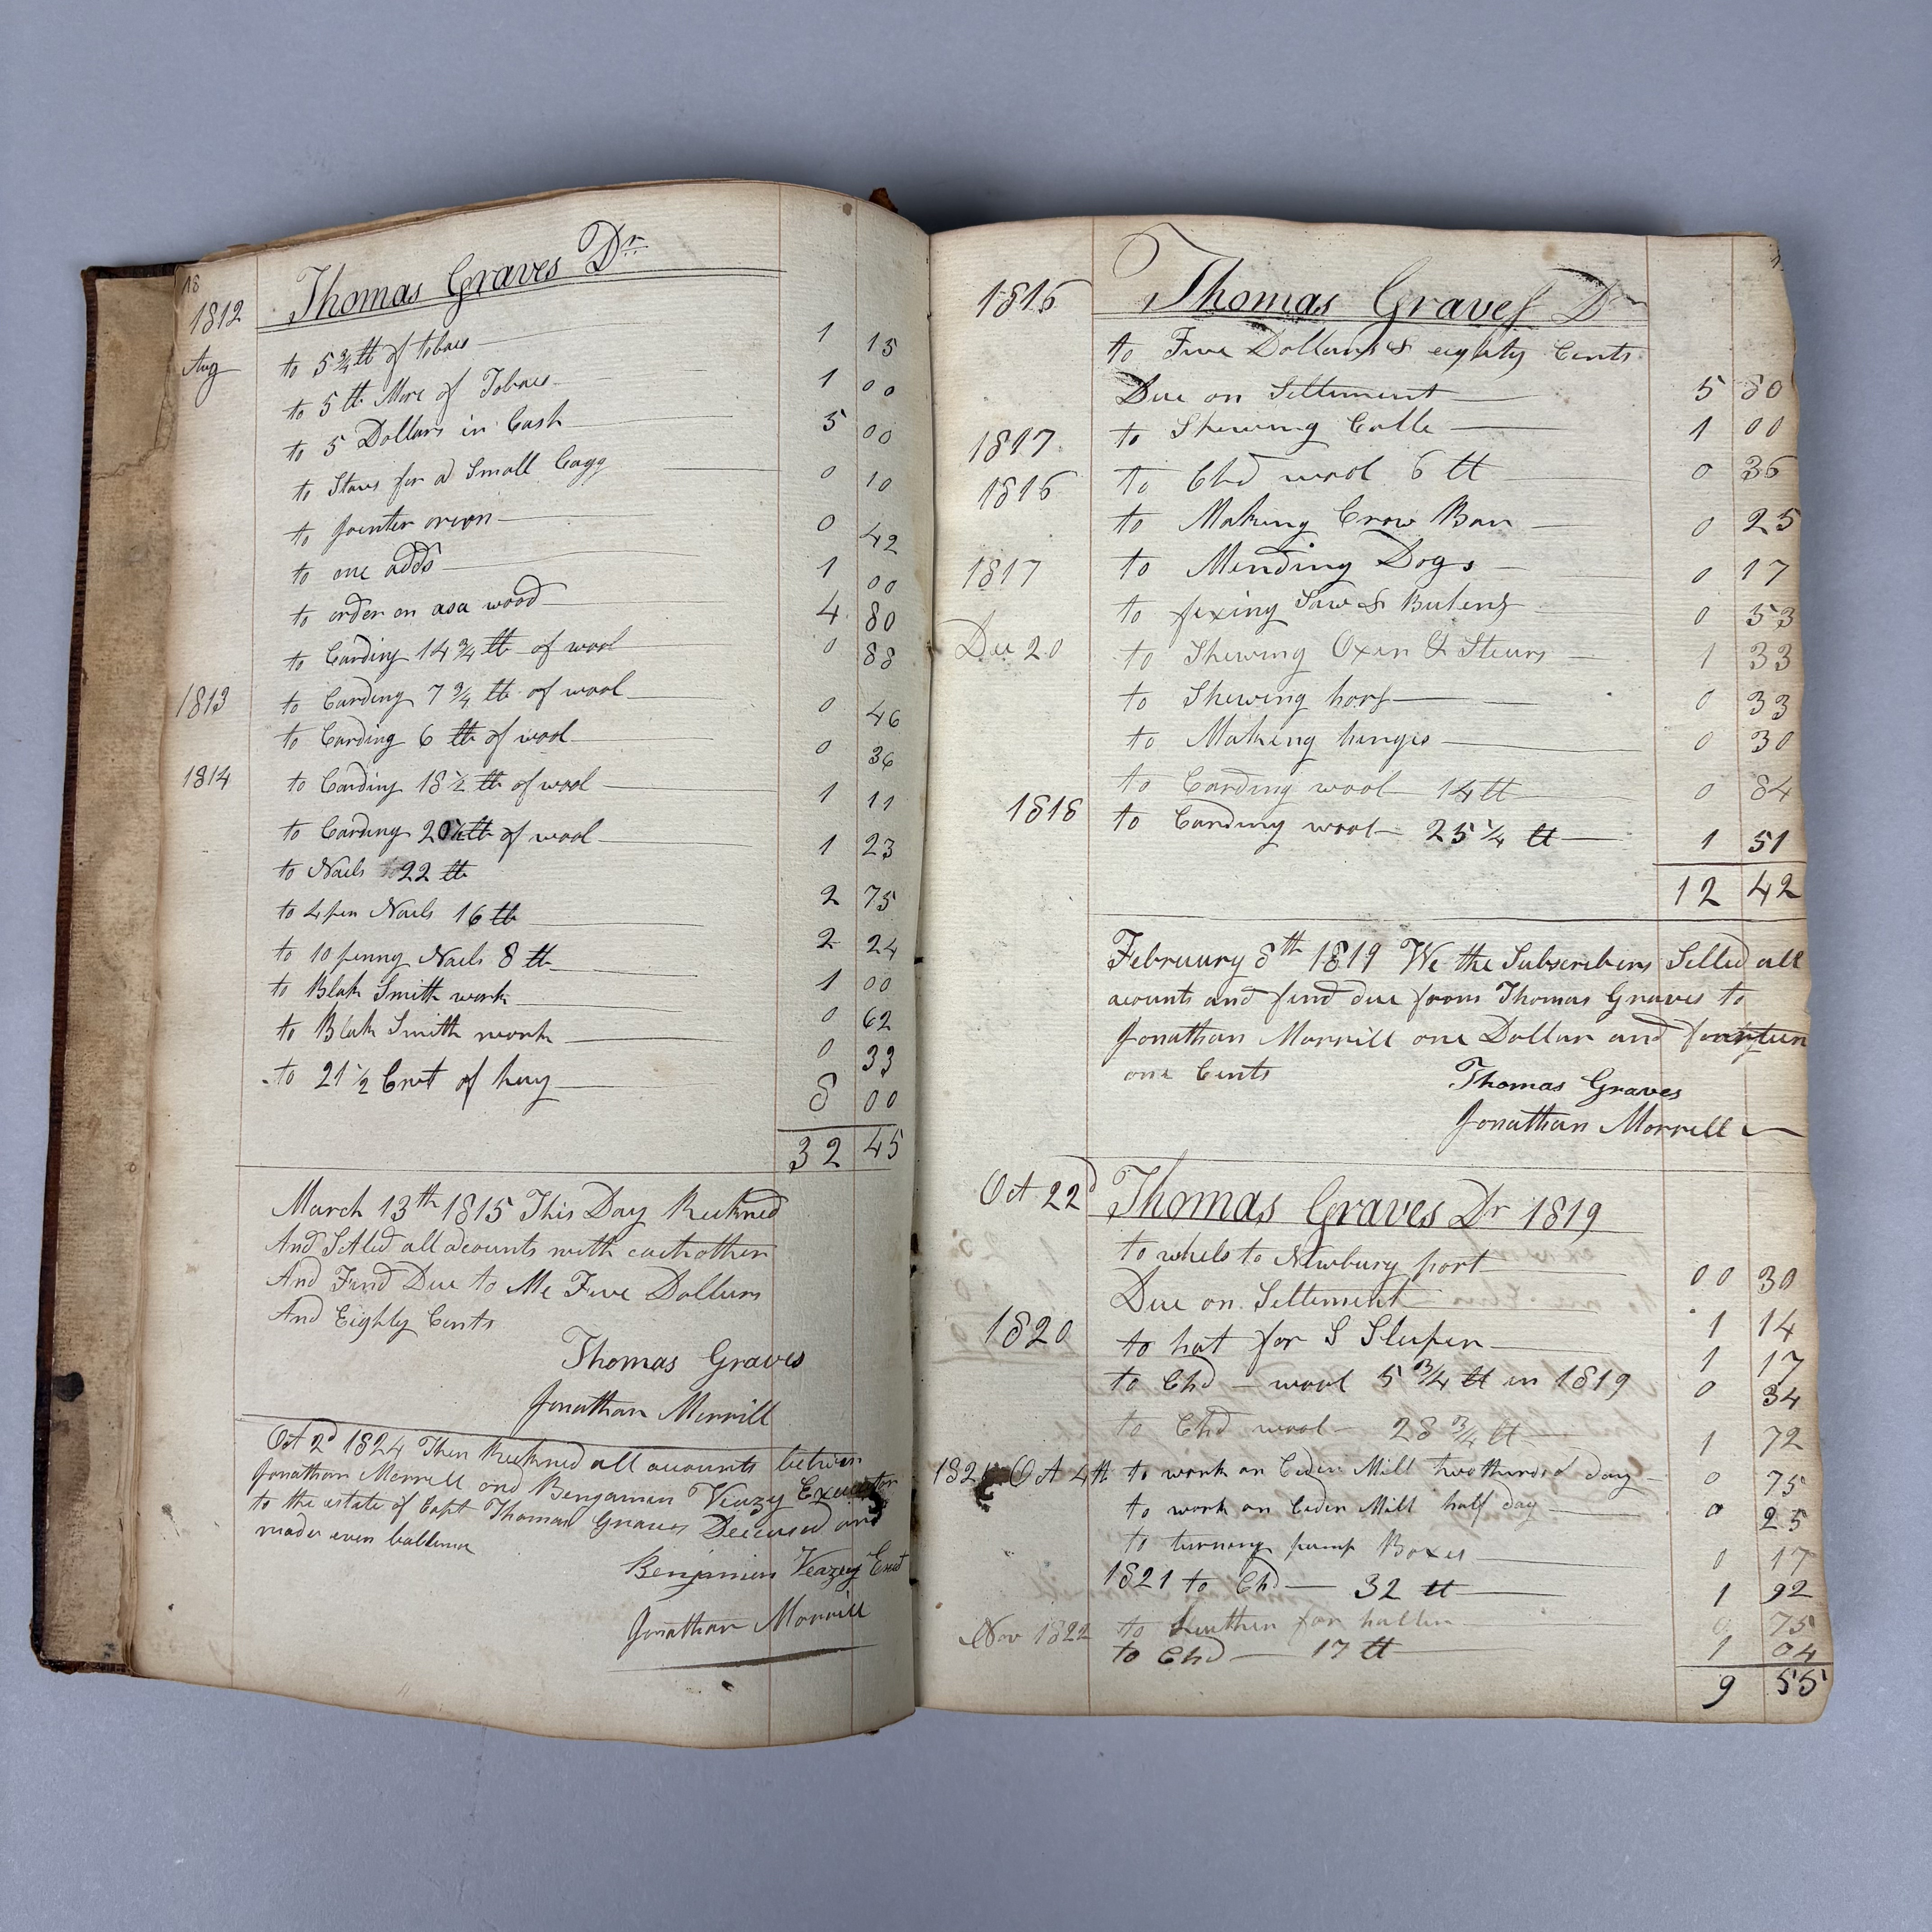 18
1812 Thomas Graves Dr
Aug to 5 3/4 lb of tobaco 1 15
to 5 lb More of Tobaco 1 00
to 5 Dollars in Cash 5 00
to Staves for a Small Cagg 0 10
to jointer 0 42
to one adds 1 00
to order on asa wood 4 80
to Carding 14 3/4 lb of wool 0 88
1813 to Carding 7 3/4 lb of wool 0 46
to Carding 6 lb of wool 0 36
1814 to Carding 18 1/2 lb of wool 1 11
to Carding 20 1/2 lb of wool 1 23
to Nails 22 lb 2 75
to 4 pen Nails 16 lb 2 24
to 10 penny Nails 8 lb 1 00
to Blak Smith work 0 62
to Blak Smith work 0 33
to 21 1/2 Cwt of hay 8 00
32 45
March 13th 1815 This Day Reckned
And Setled all acounts with eachother
And Fund Due to Me Five Dollars
And Eighty Cents
Thomas Graves
Jonathan Morrill
Oct 2d 1824 Then Reckned all accounts between
Jonathan Morrell and Bengamin Veazy Executor
to the estate of Capt Thomas Graves Deceased and
made even ballence
Benjamin Veazey Exect
Jonathan Morrill
1816 Thomas Graves Dr
to Five Dollars & eighty Cents
Due on Settlement 5 80
1817 to Shewing Colte 1 00
1816 to Chd wool 6 lb 0 36
to Making Crow Bar 0 25
1817 to Mending Dogs 0 17
to fixing Saw & 0 53
Dec 20 to Shewing Oxen & Steurs 1 33
to Shewing hors 0 33
to Making hinges 0 30
to Carding wool 14 lb 0 84
1818 to Carding wool 25 1/4 lb 1 51
12 42
February 8th 1819 We the Subscribers Setled all
acounts and find due from Thomas Graves to
Jonathan Morrill one Dollar and
one Cents
Thomas Graves
Jonathan Morrell
Oct 22d Thomas Graves Dr 1819
to whels to Newbury port 00 30
Due on Settement 1 14
1820 to hat for S Sleeper 1 17
to Chd wool 5 3/4 lb in 1819 0 34
to Chd wool 28 3/4 lb 1 72
Oct 4th to work on Ceder Mill two thirds of day 0 75
to work on Ceder Mill half day 0 25
to turning pump Boxes 0 17
1821 to Chd 32 lb 1 92
Nov 1822 to Leather for halter 0 75
to Chd 17 lb 1 04
9 55